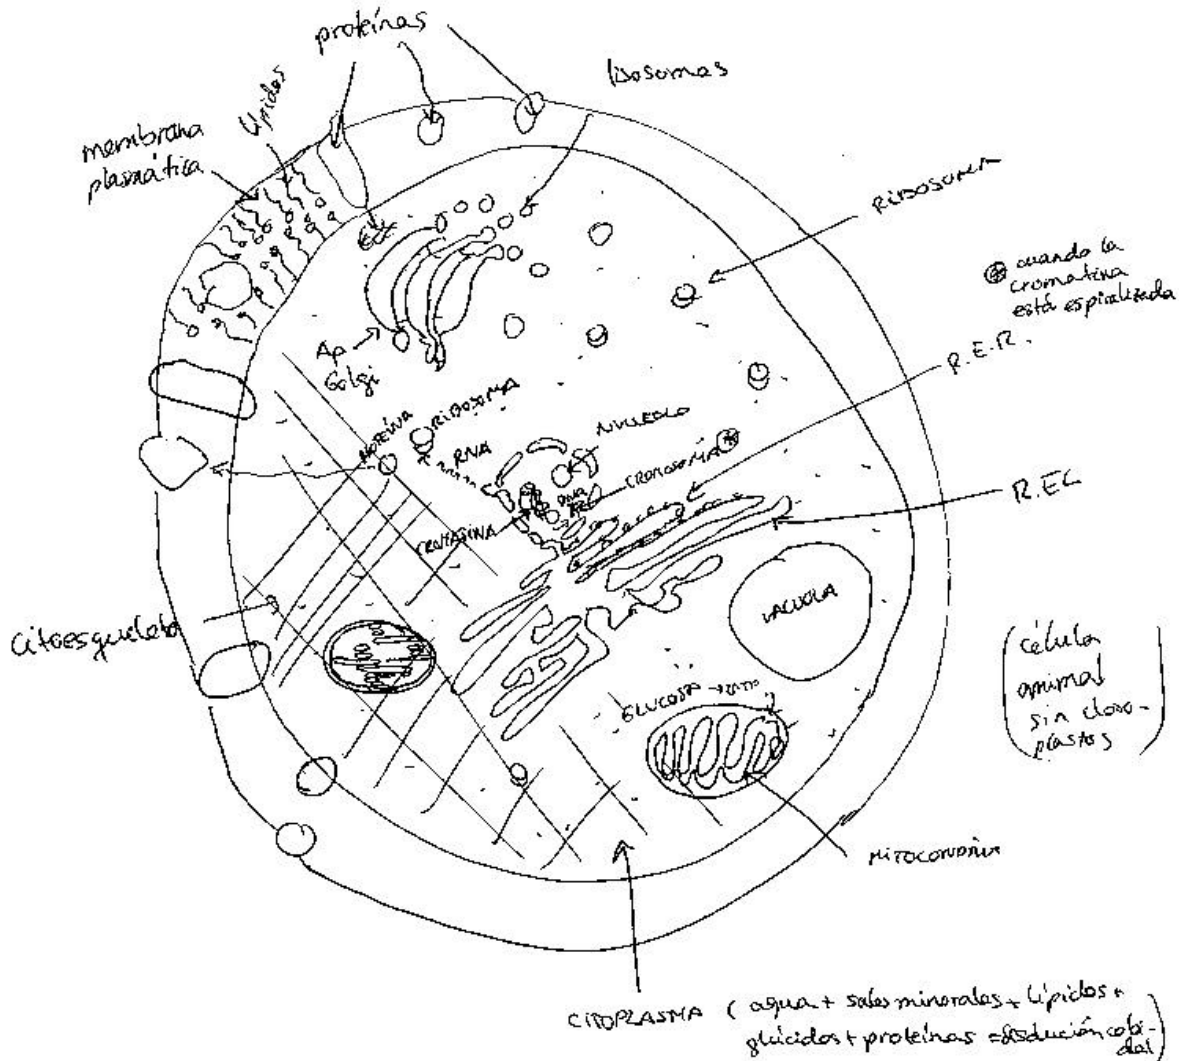 proteínas
lisosomas
lípidos
membrana
plasmática
RIBOSOMA
⊛ cuando la
cromatina
está espiralizada
R.E.R.
Ap
Golgi
RIBOSOMA
PROTEÍNA
RNA
NUCLEOLO
CROMOSOMA ⊛
DNA
CROMATINA
R.EL
VACUOLA
citoesqueleto
(célula
animal
sin cloro-
plastos)
GLUCOSA →
MITOCONDRIA
CITOPLASMA (agua + sales minerales + lípidos +
glúcidos + proteínas = disolución coloi-
dal)